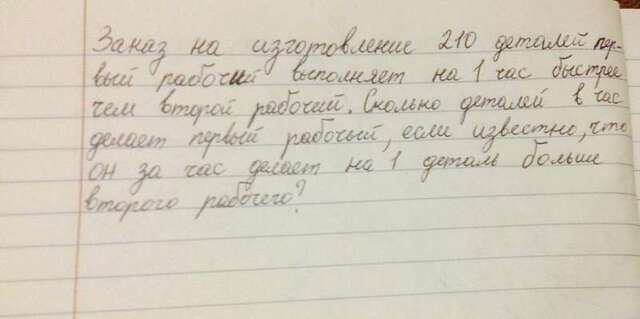 Заказ на изготовление 210 деталей пер-
вый рабочий выполняет на 1 час быстрее
чем второй рабочий. Сколько деталей в час
делает первый рабочый, если известно, что
он за час делает на 1 деталь больше
второго рабочего?